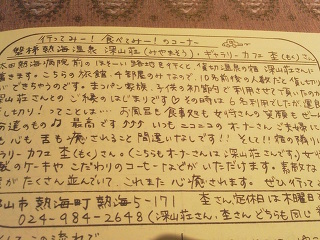 行ってみー! 食べてみー! のコーナー
磐梯熱海温泉 深山荘(みやまそう)・ギャラリーカフェ 杢(もく)さん
太田熱海病院前のほそーい路地を行くと、貸切温泉の宿 深山荘さんに
着きます。こちらの旅館、4部屋のみなので、10名前後の人数だと貸し切り
できちゃうのです。まつパン家族、子供の初節句で利用させて頂いたのが
山荘さんとのご縁のはじまりです♡その時は6名利用でしたが運良
し切り!ってことは… お風呂も食事処も女将さんの笑顔もぜーん
達のもの♪ 最高です いつもニコニコのオーナーさんご夫婦に
も心も 舌も癒されること間違いなしです!! そして!!宿の隣り
ラリーカフェ 杢(もく)さん。(こちらもオーナーさんは深山荘さんです)女
製のケーキやこだわりのコーヒーなどがいただけます。素敵な
がたくさん並んでいて、これまた心癒されます。ぜひ行って
山市 熱海町 熱海5-171 杢さん、定休日は木曜日
024-984-2648(深山荘さん、杢さんどちらも同じ